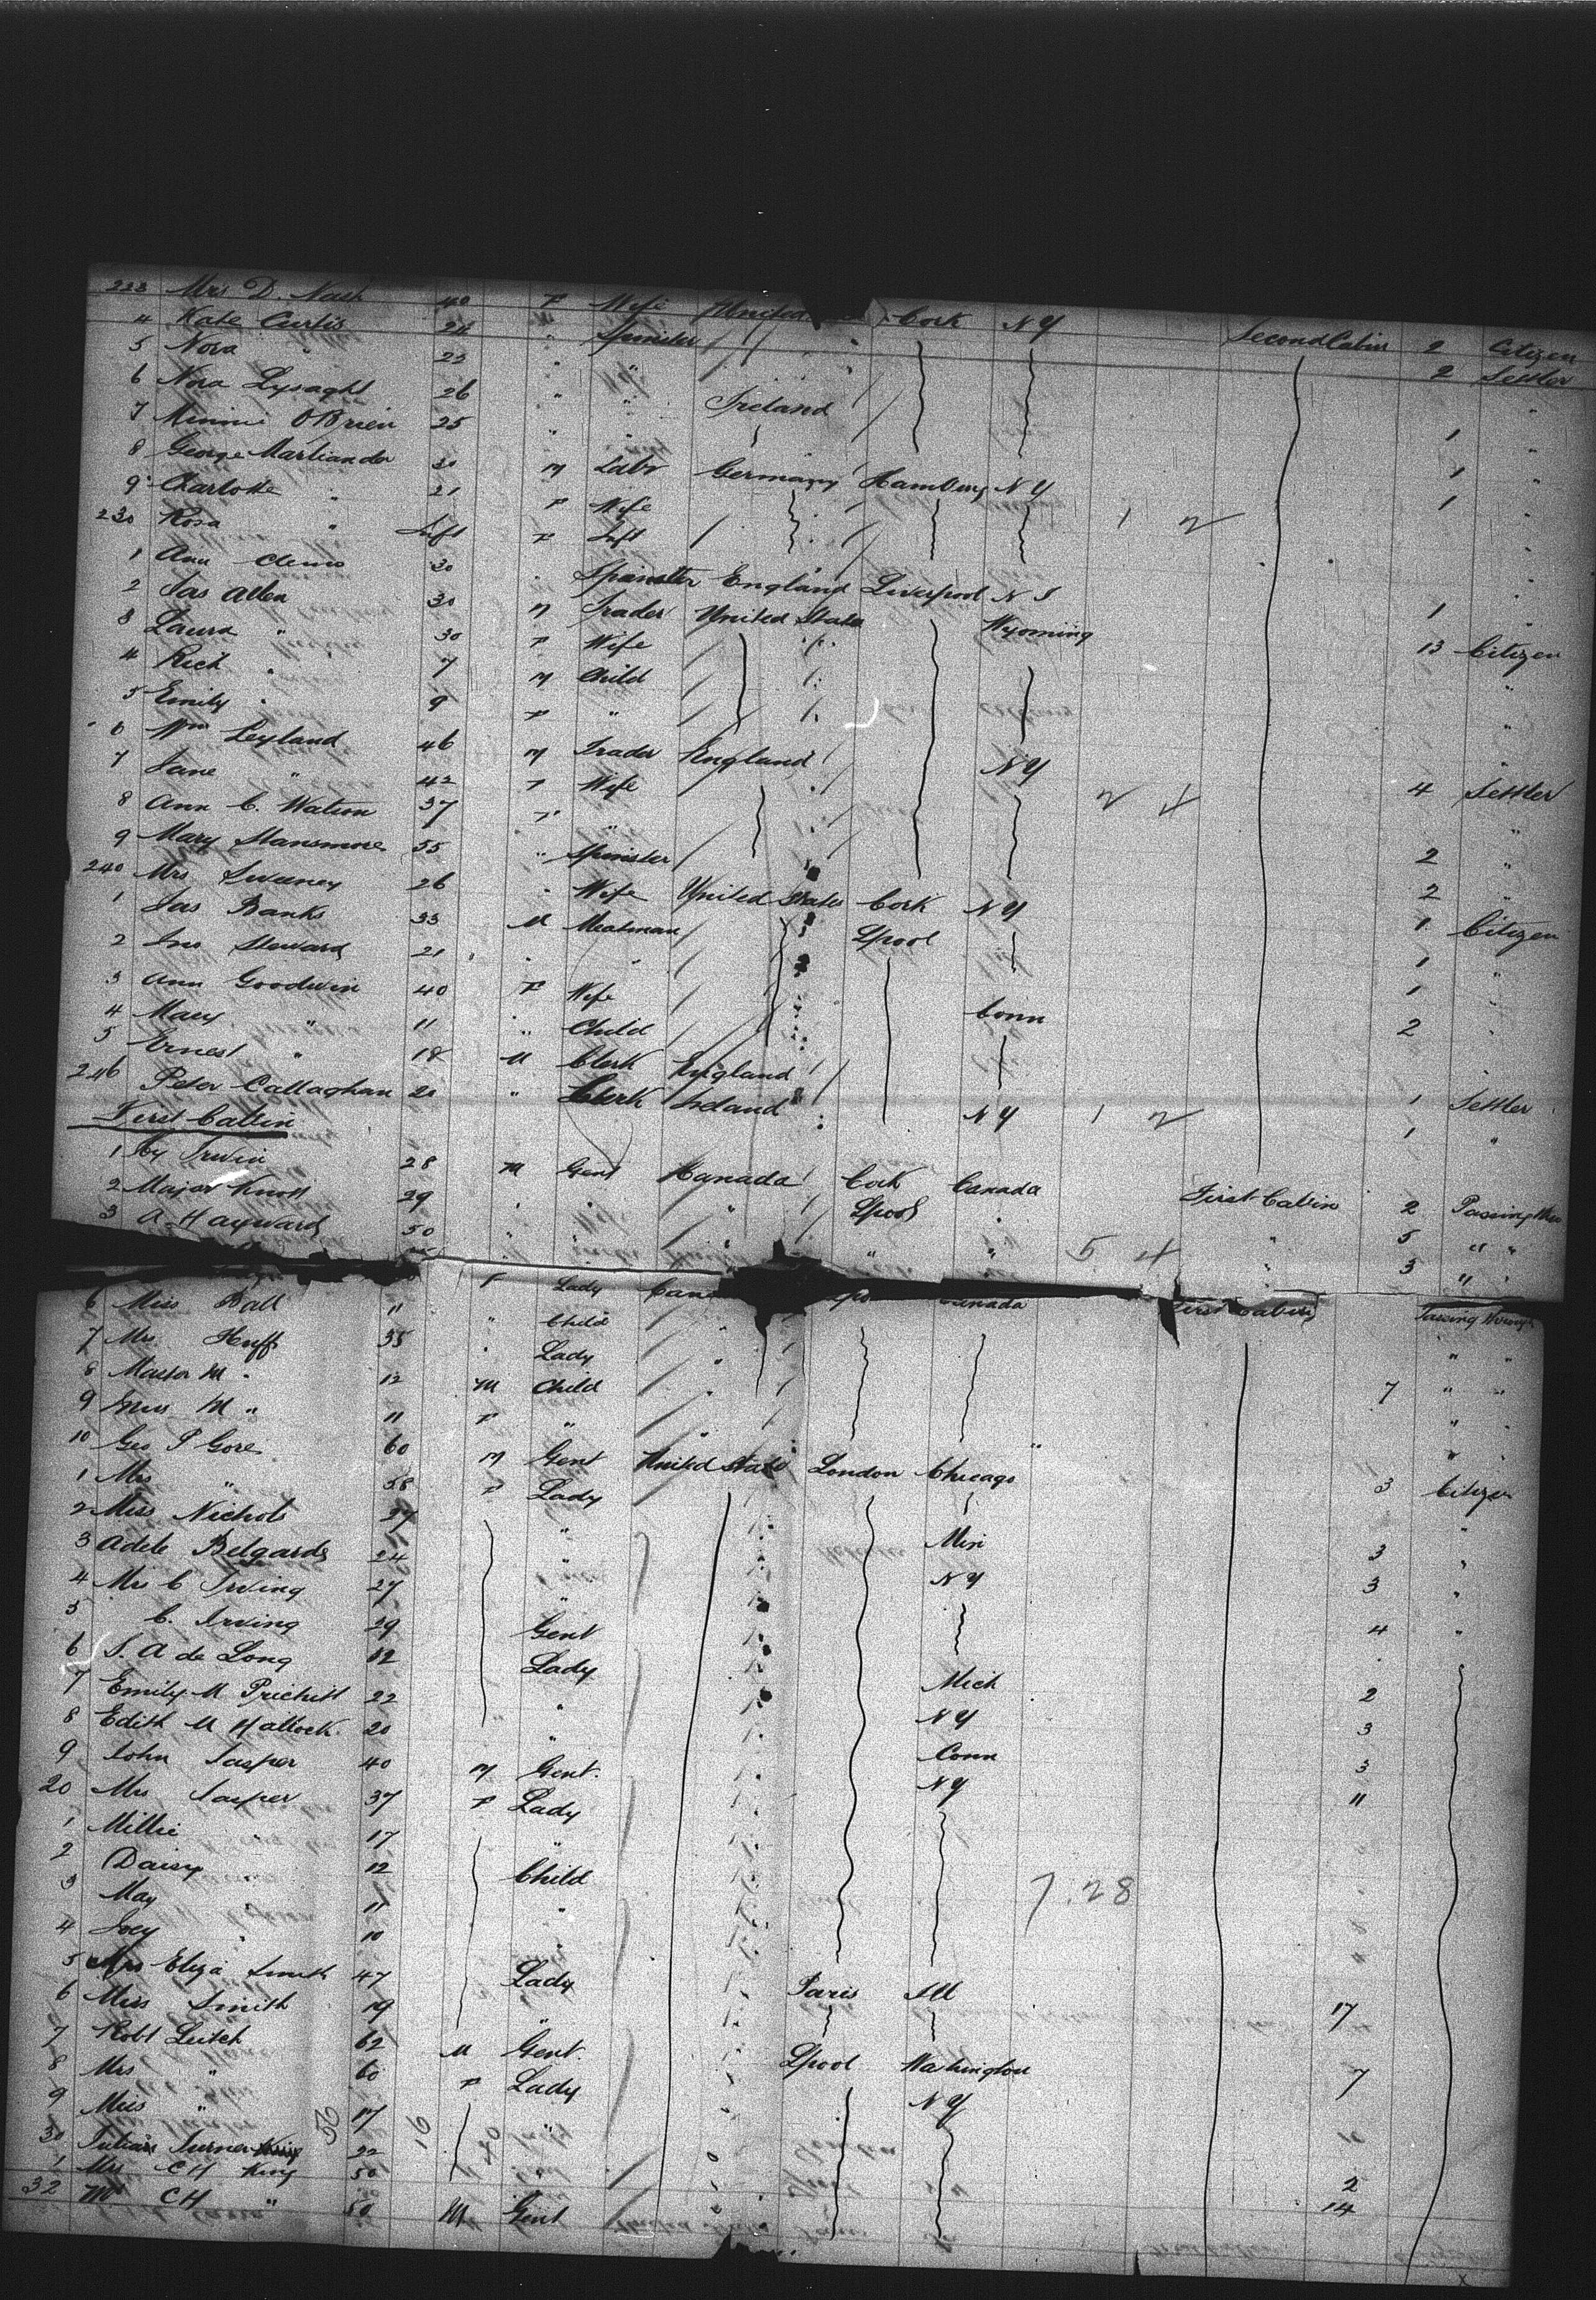 223 Mrs D. Nash 40 F Wife United Cork NY Second Cabin 2 Citizen
4 Kate Curtis 24 " Spinster 2 Settler
5 Nora " 23 " "
6 Nora Lysaght 26 " " Ireland 1 "
7 Minnie O'Brien 25 " " 1 "
8 George Martiander 30 M Labr Germany Hamburg NY 1 "
9 Charlotte " 21 F Wife 1 2
230 Rosa " Inft F Inft
1 Ann Clems 30 " Spinster England Liverpool N J 1 "
2 Jas Allen 30 M Trader United States Wyoming 13 Citizen
3 Laura " 30 F Wife
4 Rich " 7 M Child "
5 Emily " 9 F " "
6 Wm Leyland 46 M Trader England NY 4 Settler
7 Jane " 42 F Wife 2 4 "
8 Ann C. Watson 37 F " 2 "
9 Mary Stansmore 55 " Spinster 2 "
240 Mrs Sweeney 26 " Wife United States Cork NY 1 Citizen
1 Jas Banks 33 M Meatman Lpool 1 "
2 Jno Steward 21 " " 1 "
3 Ann Goodwin 40 F Wife Conn 2 "
4 Mary " 11 " Child
5 Ernest " 18 M Clerk England 1 Settler
246 Peter Callaghan 20 " Clerk Ireland NY 1 2 1 "
First Cabin
1 Hy Irwin 28 M Gent Canada Cork Canada First Cabin 2 Passing thro
2 Major Knott 29 " " " Lpool " 5 " "
3 A Hayward 50 " " " " " 5 4 " 3 " "
F Lady Canada First Cabin Passing through
6 Miss Ball 11 " Child " "
7 Mrs Huff 35 " Lady " 7 " "
8 Master M " 12 M Child " " "
9 Miss M " 11 F " " " "
10 Geo P Gore 60 M Gent United States London Chicago 3 Citizen
1 Mrs " 58 F Lady "
2 Miss Nichols 27 " Min 3 "
3 Adele Belgarde 24 " NY 3 "
4 Mrs C Irving 27 " 4 "
5 C. Irving 29 Gent
6 S. A de Long 12 Lady Mich 2
7 Emily M Prichitt 22 " NY 3
8 Edith M Hallock 20 " Conn 3
9 John Jasper 40 M Gent. NY 11
20 Mrs Jasper 37 F Lady
1 Millie " 17 "
2 Daisy " 12 Child
3 May " 11 " 7.28
4 Joey " 10 "
5 Mrs Eliza Smith 47 Lady Paris Ill 17
6 Miss Smith 19 "
7 Robt Leitch 62 M Gent. Lpool Washington 7
8 Mrs " 60 F Lady NY
9 Miss " 17 "
30 Julian Turner 22 " 2
1 Mrs C H King 50 " 14
32 Mr C H " 50 M Gent